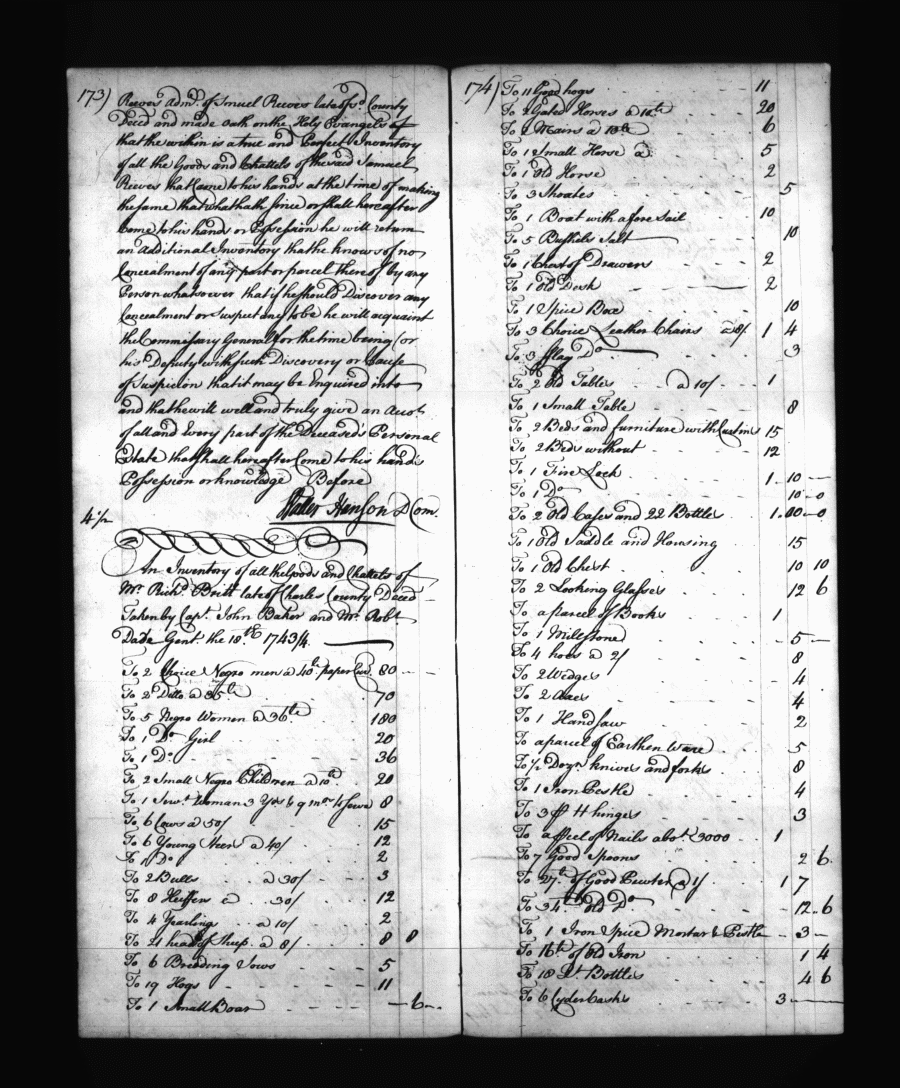 173)
Reeves Adm.r of Smuel Reeves late of s.d County
Deced and made oath on the Holy Evangels of
that the within is a true and Perfect Inventory
of all the Goods and Chattels of the said Samuel
Reeves that Came to his hands at the time of making
the same that what hath since or shall hereafter
Come to his hands or Possession he will return
an Additional Inventory that he knows of no
Concealment of any part or parcel thereof by any
Person whatsoever that if he should Discover any
Concealment or Suspect any to be he will acquaint
the Commissary General for the time being (or
his Deputy with such Discovery or Cause
of Suspicion that it may be Enquired into
and that he will well and truly give an Acco.t
of all and Every part of the Deceased's Personal
Estate that shall hereafter Come to his hands
Possession or knowledge Before
Hanson D Com.
4 1/2
An Inventory of all the Goods and Chattels of
Mr. Rich.d Britt late of Charles County Deced
Taken by Cap.t John Baker and Mr. Rob.t
Dade Gent. the 18.th 1743/4.
To 2 Choice Negro men a 40.lb paper Cur. 80
To 2 Ditto a 35 lb 70
To 5 Negro Women a 36 lb 180
To 1 D.o Girl 20
To 1 D.o 36
To 2 Small Negro Children a 10 20
To 1 Serv.t Woman 3 Yrs & 9 mos to serve 8
To 6 Cows a 50/ 15
To 6 Young Steers a 40/ 12
To 1 D.o 2
To 2 Bulls a 30/ 3
To 8 Heiffers a 30/ 12
To 4 Yearling a 10/ 2
To 21 head of Sheep a 8/ 8 8
To 6 Breeding Sows 5
To 19 Hogs 11
To 1 Small Boar — 6 —
174)
To 11 Good hogs 11
To 2 Gated Horses a 10 lb 20
To 2 Mairs a 6
To 1 Small Horse a 5
To 1 Old Horse 2
To 3 Shoates 5
To 1 Boat with a fore Sail 10
To 5 Bushels Salt 10
To 1 Chest of Drawers 2
To 1 Old Desk 2
To 1 Spice Box 10
To 3 Choice Leather Chairs a 8/ 1 4
To 3 fflag D.o 3
To 2 Old Tables a 10/ 1
To 1 Small Table 8
To 2 Beds and furniture with Curtins 15
To 2 Beds without 12
To 1 Fire Lock 1 10 —
To 1 D.o 10 0
To 2 Old Cases and 22 Bottles 1 00 0
To 1 Old Saddle and Housing 15
To 1 Old Chest 10 10
To 2 Looking Glasses 12 6
To a parcel of Books 1
To 1 Millstone 5 —
To 4 hoes a 2/ 8
To 2 Wedges 4
To 2 Axes 4
To 1 Handsaw 2
To a parcel of Earthen Ware 5
To 1/2 Doz.n knives and forks 8
To 1 Iron Pestle 4
To 3 H hinges 3
To a of Nails abo.t 3000 1
To 7 Good Spoons 2 6
To 27 lb of Good Pewter a 1/ 1 7
To 34 lb old D.o 12 6
To 1 Iron Spice Mortar & Pestle 3 —
To 16 lb of Old Iron 1 4
To 18 Q.t Bottles 4 6
To 6 Cyder Casks 3